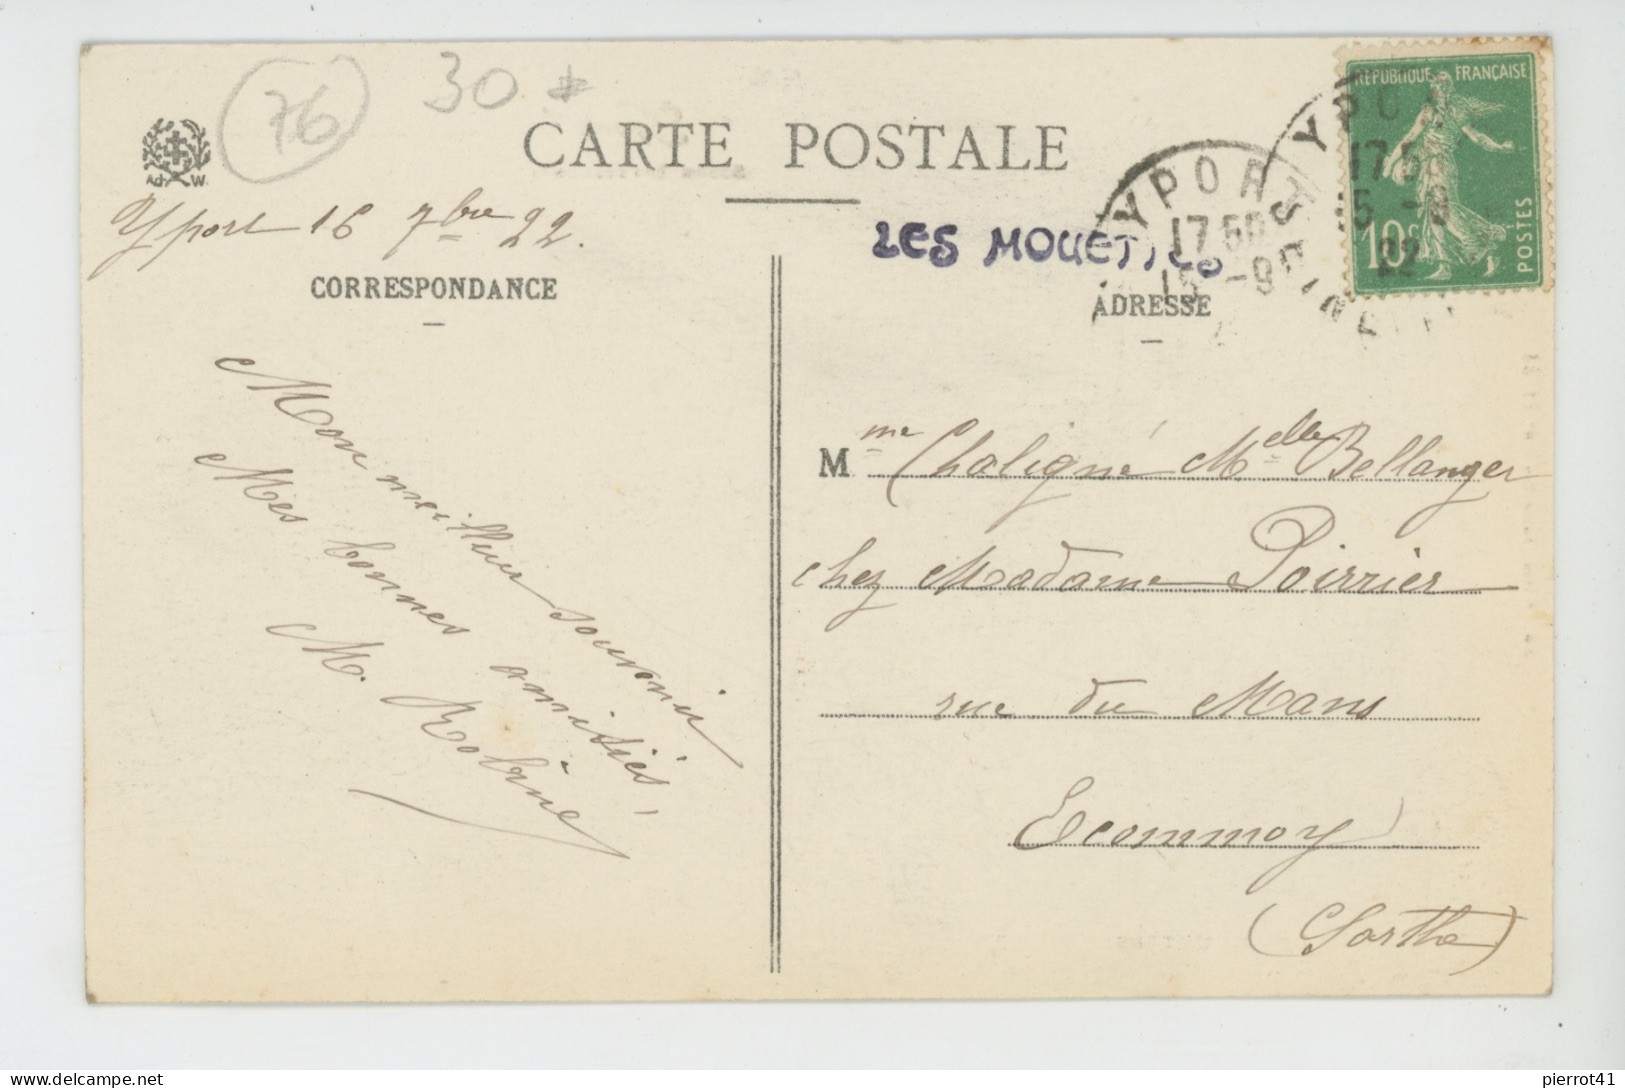 76
30 *
CARTE POSTALE
Ad. W.
Yport 16 7bre 22.
LES MOUETTES
CORRESPONDANCE
ADRESSE
REPUBLIQUE FRANÇAISE
10c
POSTES
YPORT
17 50
15 -9
YPORT
17 50
15 -9
22
Mon meilleur souvenir
Mes bonnes amitiés,
M. Robine
Mme Chaligné Melle Bellanger
chez Madame Poirrier
rue du Mans
Ecommoy
(Sarthe)
delcampe.net
pierrot41